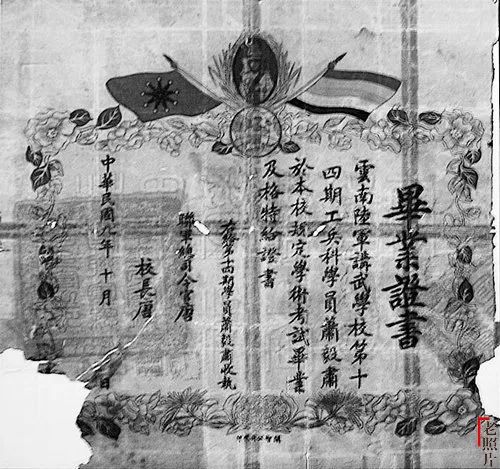 畢業證書
雲南陸軍講武學校第十
四期工兵科學員蕭毅肅
於本校規定學術考試畢業
及格特給證書
右給第十四期學員蕭毅肅收執
聯軍總司令官唐
校長唐
中華民國九年十月 日
老照片